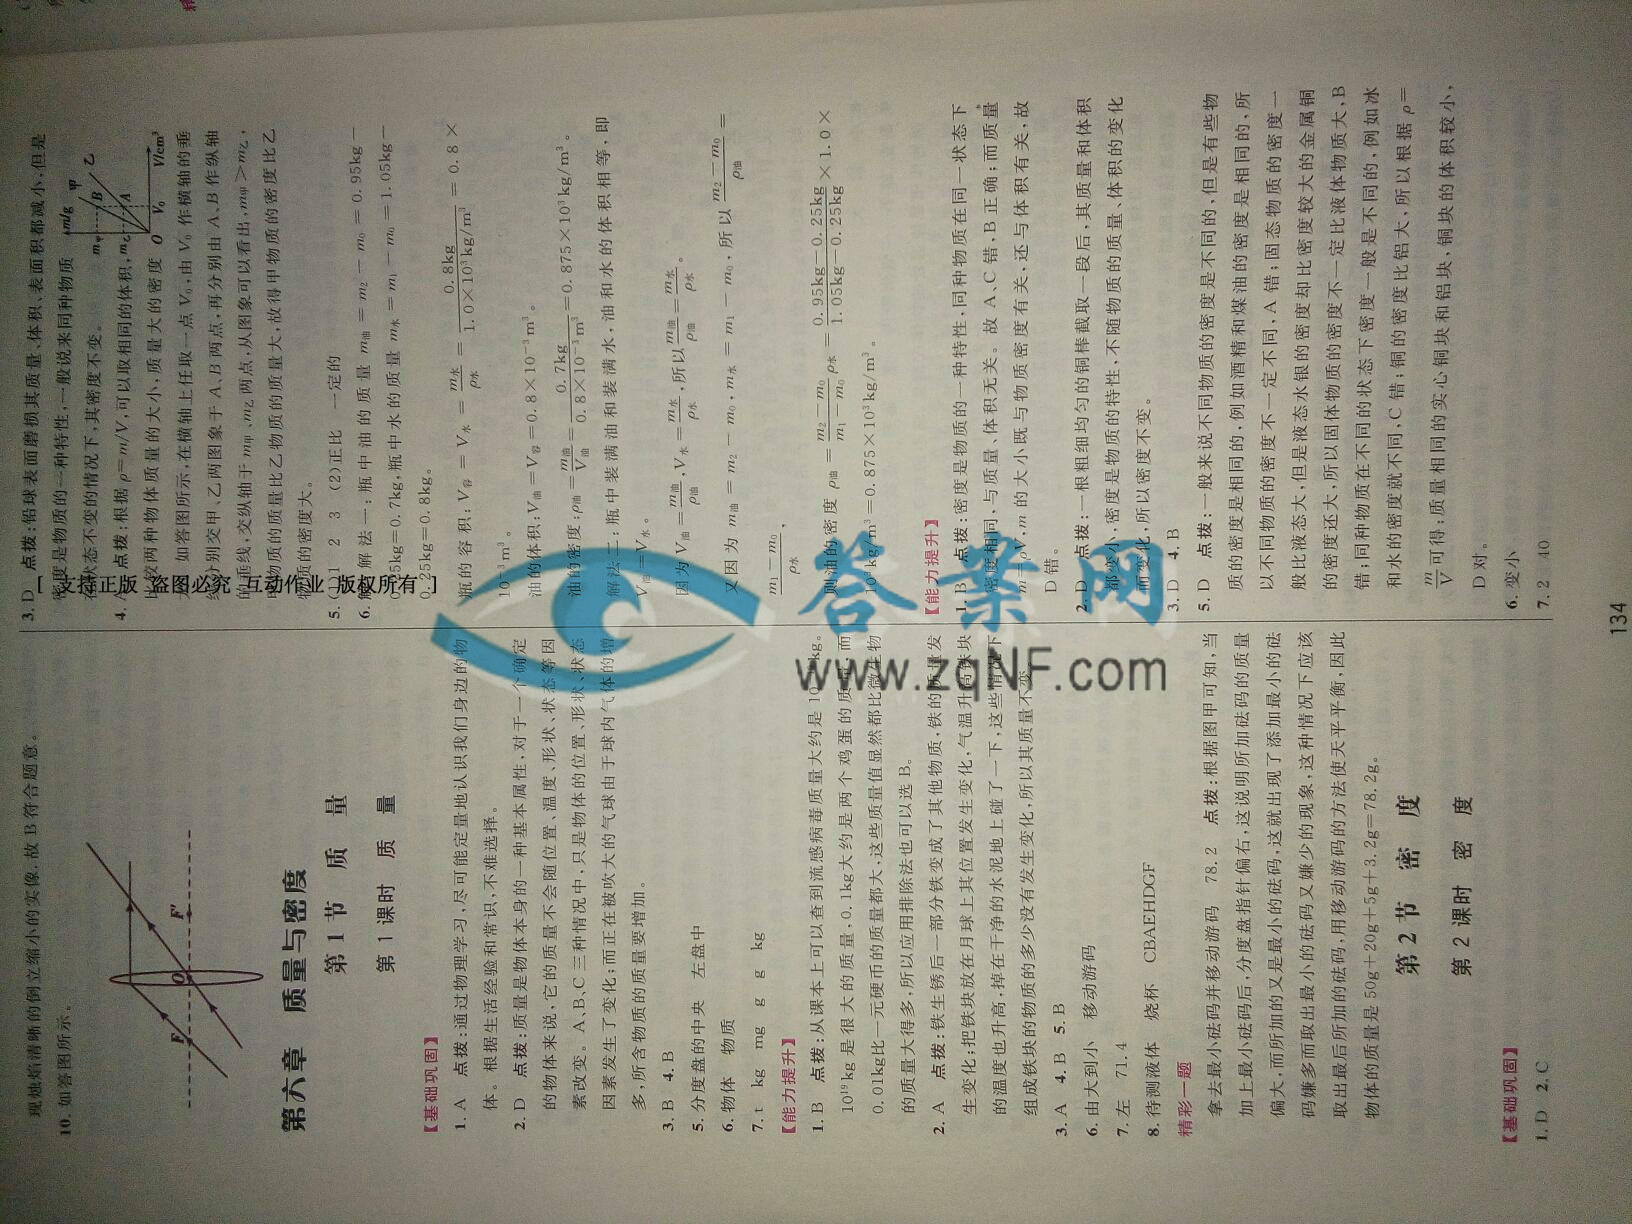 观烛焰清晰的倒立缩小的实像.故B符合题意。
10. 如答图所示。
F
O
F'
第六章 质量与密度
第1节 质 量
第1课时 质 量
【基础巩固】
1. A 点拨:通过物理学习,尽可能定量地认识我们身边的物
体。根据生活经验和常识,不难选择。
2. D 点拨:质量是物体本身的一种基本属性,对于一个确定
的物体来说,它的质量不会随位置、温度、形状、状态等因
素改变。A、B、C三种情况中,只是物体的位置、形状、状态
因素发生了变化;而正在被吹大的气球由于球内气体的增
多,所含物质的质量要增加。
3. B 4. B
5. 分度盘的中央 左盘中
6. 物体 物质
7. t kg mg g g kg
【能力提升】
1. B 点拨:从课本上可以查到流感病毒质量大约是10 kg。
10¹⁹ kg 是很大的质量,0.1kg大约是两个鸡蛋的质量,而
0.01kg比一元硬币的质量都大,这些质量值显然都比微生物
的质量大得多,所以应用排除法也可以选 B。
2. A 点拨:铁生锈后一部分铁变成了其他物质,铁的质量发
生变化;把铁块放在月球上其位置发生变化,气温升高铁块
的温度也升高,掉在干净的水泥地上碰了一下,这些情况下
组成铁块的物质的多少没有发生变化,所以其质量不变。
3. A 4. B 5. B
6. 由大到小 移动游码
7. 左 71.4
8. 待测液体 烧杯 CBAEHDGF
精彩一题
拿去最小砝码并移动游码 78.2 点拨:根据图甲可知,当
加上最小砝码后,分度盘指针偏右,这说明所加砝码的质量
偏大,而所加的又是最小的砝码,这就出现了添加最小的砝
码嫌多而取出最小的砝码又嫌少的现象,这种情况下应该
取出最后所加的砝码,用移动游码的方法使天平平衡,因此
物体的质量是50g+20g+5g+3.2g=78.2g。
第2节 密 度
第2课时 密 度
【基础巩固】
1. D 2. C
3. D 点拨:铅球表面磨损其质量、体积、表面积都减小,但是
密度是物质的一种特性,一般说来同种物质
在状态不变的情况下,其密度不变。
4. 点拨:根据ρ=m/V,可以取相同的体积,
比较两种物体质量的大小,质量大的密度
大。如答图所示,在横轴上任取一点V₀,由V₀作横轴的垂
线分别交甲、乙两图象于A、B两点,再分别由A、B作纵轴
的垂线,交纵轴于m甲、m乙两点,从图象可以看出,m甲>m乙,
甲物质的质量比乙物质的质量大,故得甲物质的密度比乙
物质的密度大。
m/g
甲
乙
m甲
m乙
B
A
O
V₀
V/cm³
5. (1)1 2 3 (2)正比 一定的
6. 解法一:瓶中油的质量 m油=m₂-m₀=0.95kg-
0.25kg=0.7kg,瓶中水的质量 m水=m₁-m₀=1.05kg-
0.25kg=0.8kg。
瓶的容积:V容=V水=m水/ρ水=0.8kg/1.0×10³kg/m³=0.8×
10⁻³m³。
油的体积:V油=V容=0.8×10⁻³m³。
油的密度:ρ油=m油/V油=0.7kg/0.8×10⁻³m³=0.875×10³kg/m³。
解法二:瓶中装满油和装满水,油和水的体积相等,即
V油=V水。
因为V油=m油/ρ油,V水=m水/ρ水,所以m油/ρ油=m水/ρ水。
又因为m油=m₂-m₀,m水=m₁-m₀,所以m₂-m₀/ρ油=
m₁-m₀/ρ水,
则油的密度 ρ油=m₂-m₀/m₁-m₀ ρ水=0.95kg-0.25kg/1.05kg-0.25kg×1.0×
10³kg/m³=0.875×10³kg/m³。
【能力提升】
1. B 点拨:密度是物质的一种特性,同种物质在同一状态下
密度相同,与质量、体积无关。故A、C错,B正确;而质量
m=ρV,m的大小既与物质密度有关,还与体积有关,故
D错。
2. D 点拨:一根粗细均匀的铜棒截取一段后,其质量和体积
都变小,密度是物质的特性,不随物质的质量、体积的变化
而变化,所以密度不变。
3. D 4. B
5. D 点拨:一般来说不同物质的密度是不同的,但是有些物
质的密度是相同的,例如酒精和煤油的密度是相同的,所
以不同物质的密度不一定不同,A错;固态物质的密度一
般比液态大,但是液态水银的密度却比密度较大的金属铜
的密度还大,所以固体物质的密度不一定比液体物质大,B
错;同种物质在不同的状态下密度一般是不同的,例如冰
和水的密度就不同,C错;铜的密度比铝大,所以根据ρ=
m/V可得:质量相同的实心铜块和铝块,铜块的体积较小,
D对。
6. 变小
7. 2 40
134
[ 支持正版 盗图必究 互动作业 版权所有 ]
答案网
www.zqNF.com